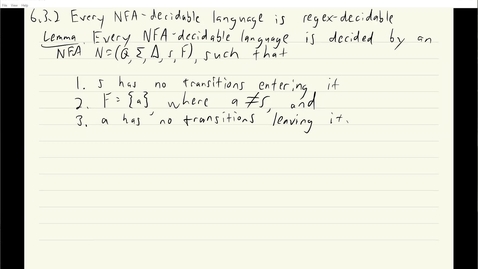 6.3.2 Every NFA-decidable language is regex-decidable
Lemma. Every NFA-decidable language is decided by an
NFA N=(Q, Σ, Δ, s, F), such that
1. s has no transitions entering it
2. F={a} where a≠s, and
3. a has no transitions leaving it.